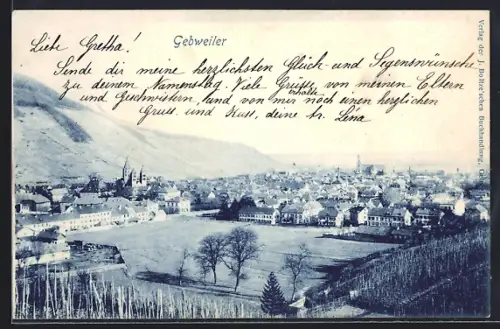 Liebe Gretha!
Gebweiler
Sende dir meine herzlichsten Glück- und Segenswünsche
zu deinem Namenstag. Viele Grüsse von meinen Eltern
und Geschwistern, und von mir noch einen herzlichen
erhalte
Gruss und Kuss, deine tr. Lina
Verlag der J. Boltze'schen Buchhandlung,